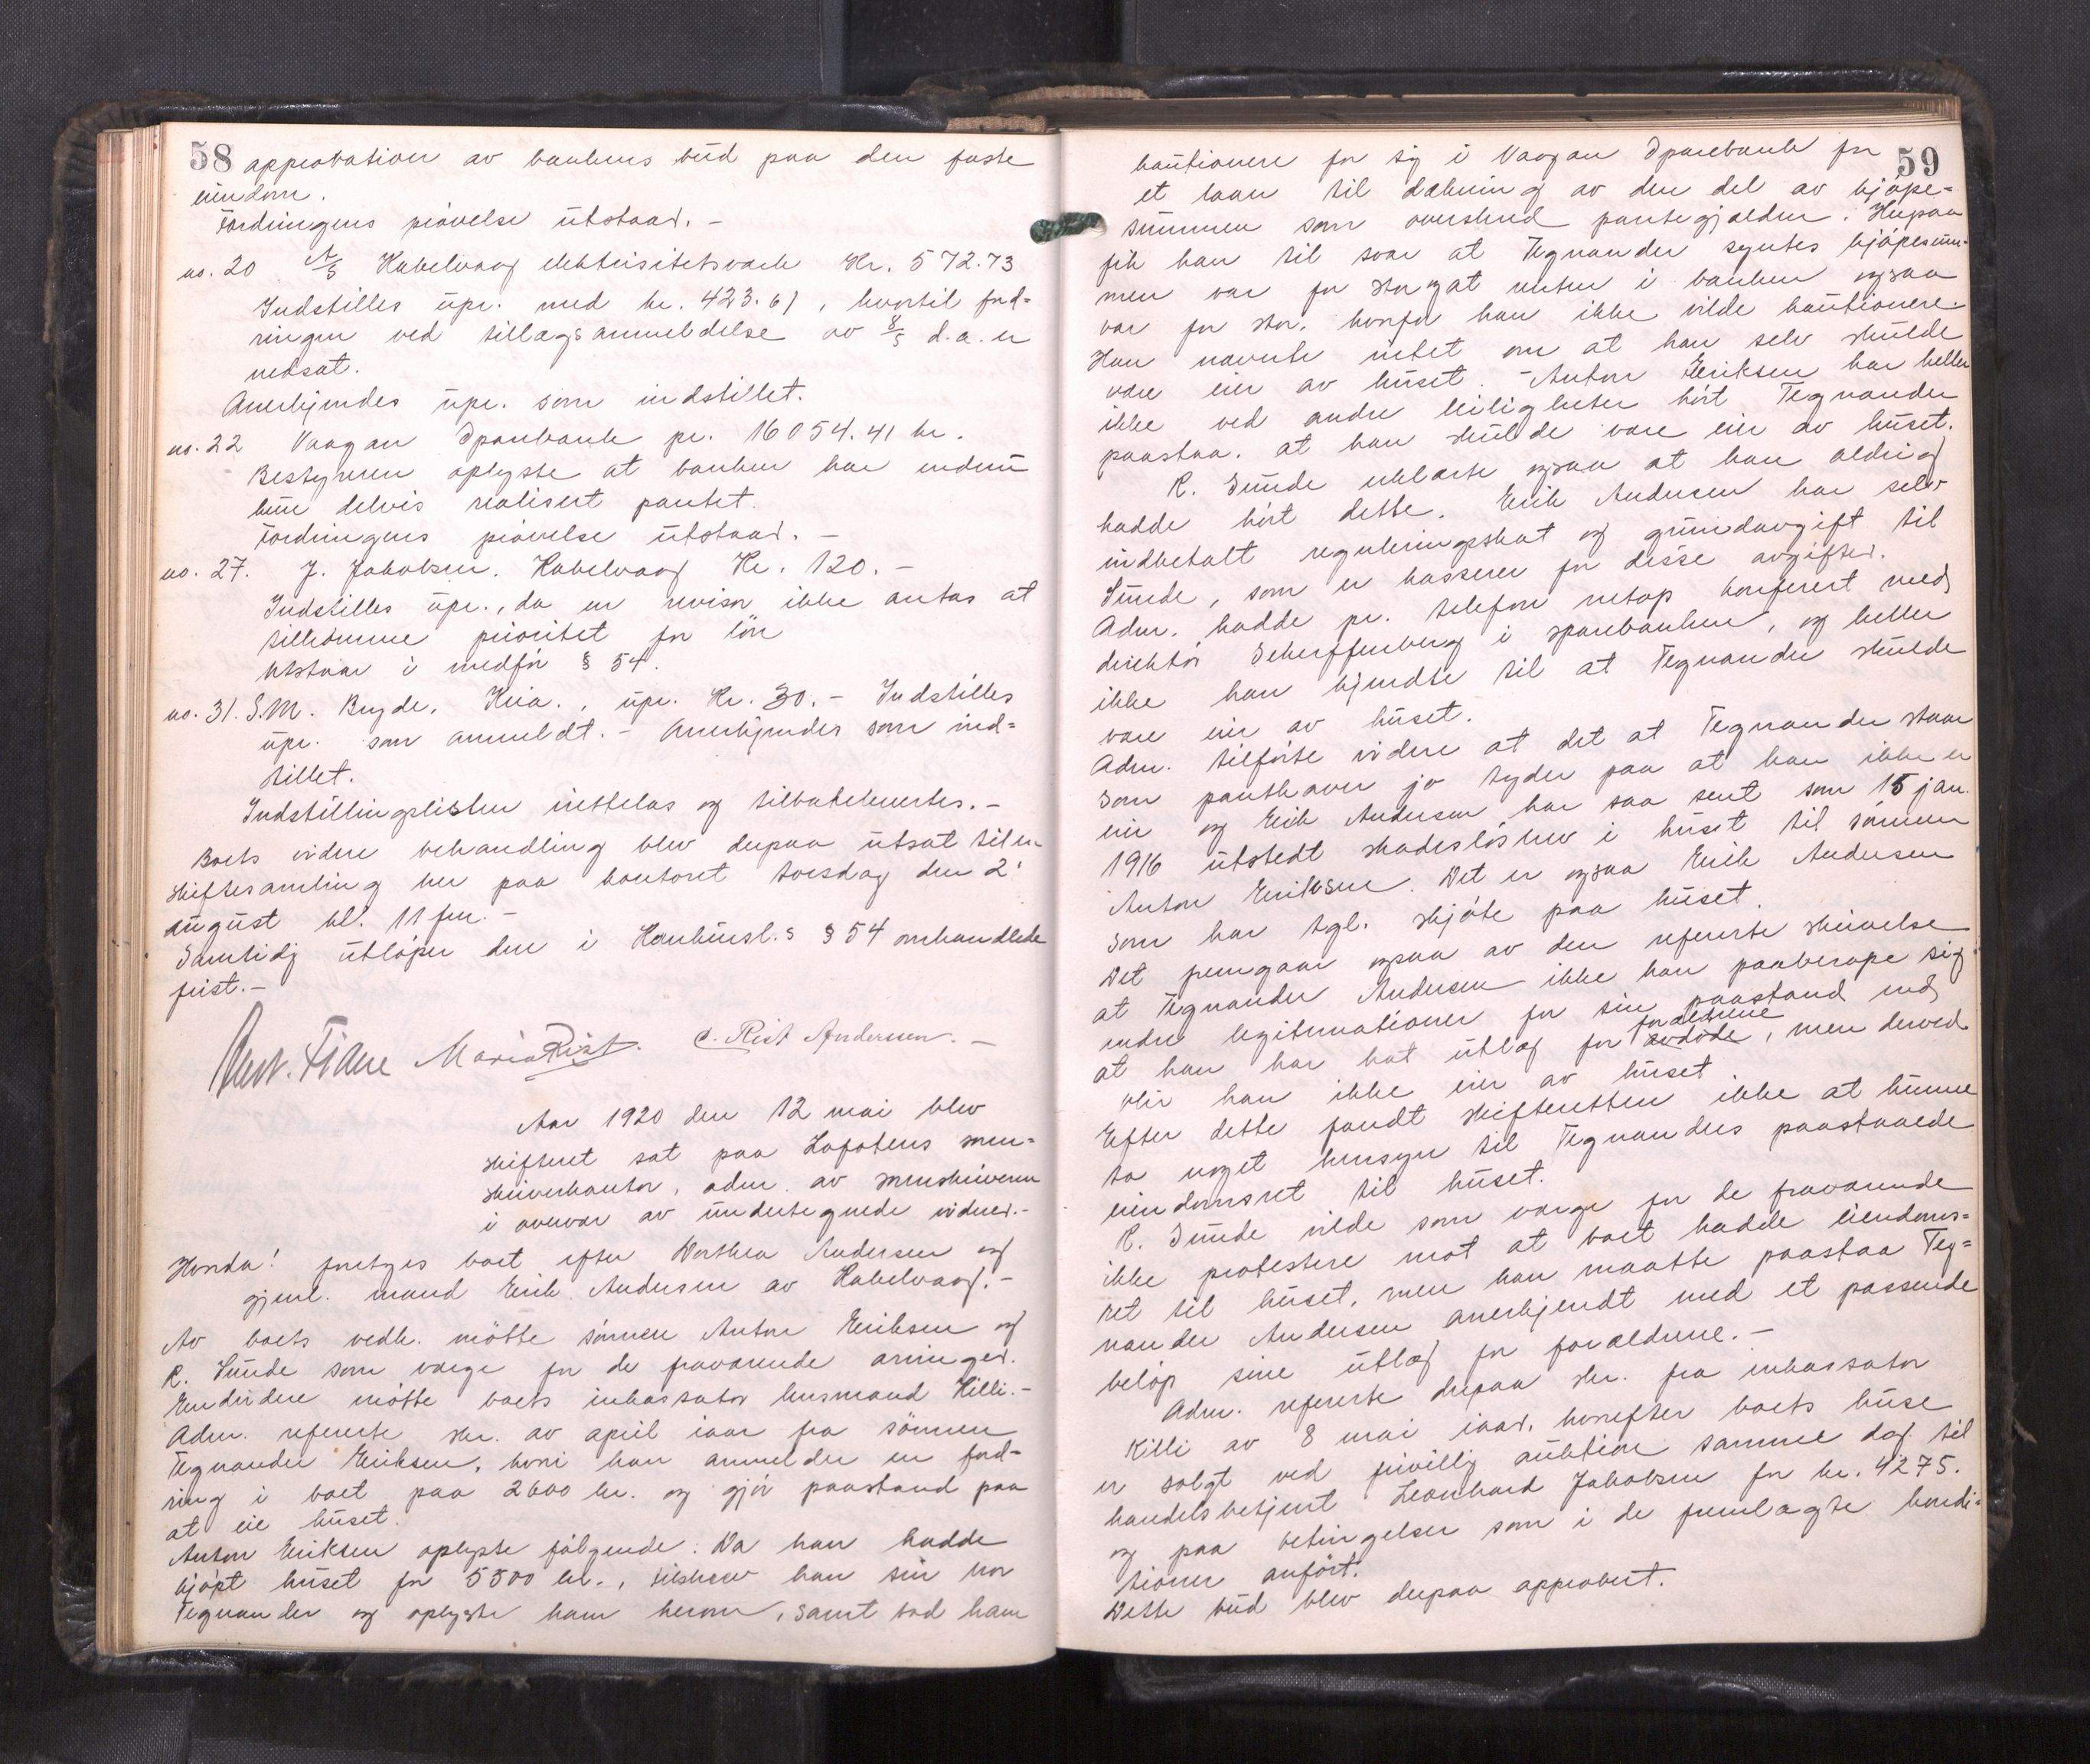 58 approbation av bankens bud paa den faste
eiendom.
Fordringens prøvelse utstaar. -
no. 20 A/S Kabelvaag elektrisitetsverk Kr. 572.73
Indstilles upr. med kr. 423.61, hvortil ford=
ringen ved tillægsanmeldelse av 8/5 d.a. er
nedsat.
Anerkjendes upr. som indstillet.
no. 22 Vaagan Sparebank pr. 16054.41 kr.
Bestyreren oplyste at banken har endnu
kun delvis realisert pantet.
Fordringens prøvelse utstaar. -
no. 27. J. Jakobsen. Kabelvaag Kr. 120. -
Indstilles upr., da en revisor ikke antas at
tilkomme prioritet for løn
Utstaar i medfør § 54.
no. 31. S.M. Bryde, Kria., upr. Kr. 30. - Indstilles
upr. som anmeldt. - Anerkjendes som ind=
stillet.
Indstillingslisten inttelas og tilbakeleveres. -
Boets videre behandling blev derpaa utsat til en
skiftesamling her paa kontoret torsdag den 2'
august kl. 11 fm. -
Samtidig utløper den i Konkursl.s § 54 omhandlede
frist. -
Maria Rist. C. Rist Andersen. -
Aar 1920 den 12 mai blev
skifteret sat paa Lofotens soren=
skriverkontor, adm. av sorenskriveren
i overvær av undertegnede vidner. -
Hvorda! foretoges boet efter Dorthea Andersen og
gjenl. mand Erik Andersen av Kabelvaag. -
Av boets vedk. møtte sønnen Anton Eriksen og
R. Sunde som værge for de fraværende arvinger.
Endvidere møtte boets inkassator lensmand Killi. -
Adm. refererte skr. av april iaar fra sønnen
Tegnander Eriksen, hvori han anmelder en ford=
ring i boet paa 2600 kr. og gjør paastand paa
at eie huset.
Anton Eriksen oplyste følgende: Da han hadde
kjøpt huset for 5500 kr., tilskrev han sin bror
Tegnander og oplyste ham herom, samt bad ham
59
kautionere for sig i Vaagan Sparebank for
et laan til dækning av den del av kjøpe=
summen som overskred pantegjælden. Herpaa
fik han til svar at Tegnander syntes kjøpesum-
men var for stor og at renten i banken ogsaa
var for stor, hvorfor han ikke vilde kautionere.
Han nævnte intet om at han selv skulde
være eier av huset. - Anton Eriksen har heller
ikke ved andre leiligheter hørt Tegnander
paastaa, at han skulde være eier av huset.
R. Sunde erklærte ogsaa at han aldrig
hadde hørt dette. Erik Andersen har selv
indbetalt reguleringsskat og grundavgift til
Sunde, som er kasserer for disse avgifter.
Adm. hadde pr. telefon netop konferert med
direktør Scherffenberg i sparebanken, og heller
ikke han kjendte til at Tegnander skulde
være eier av huset.
Adm. tilførte videre at det at Tegnander staar
som panthaver jo tyder paa at han ikke er
eier og Erik Andersen har saa sent som 15 jan.
1916 utstedt skadesløsbrev i huset til sønnen
Anton Eriksen. Det er ogsaa Erik Andersen
som har tgl. skjøte paa huset.
Det fremgaar ogsaa av den refererte skrivelse
at Tegnander Andersen ikke kan paaberope sig
andre legitimationer for sin paastand end
at han har hat utlæg for forældrene avdøde, men derved
blir han ikke eier av huset.
Efter dette fandt skifteretten ikke at kunne
ta noget hensyn til Tegnanders paastaaede
eiendomsret til huset.
R. Sunde vilde som værge for de fraværende
ikke protestere mot at boet hadde eiendoms=
ret til huset, men han maatte paastaa Teg=
nander Andersen anerkjendt med et passende
beløp sine utlæg for forældrene. -
Adm. refererte derpaa skr. fra inkassator
Killi av 8 mai iaar, hvorefter boets huse
er solgt ved frivillig auktion samme dag til
handelsbetjent Leonhard Jakobsen for kr. 4275.
og paa betingelser som i de fremlagte kondi=
tioner anført.
Dette bud blev derpaa approbert.